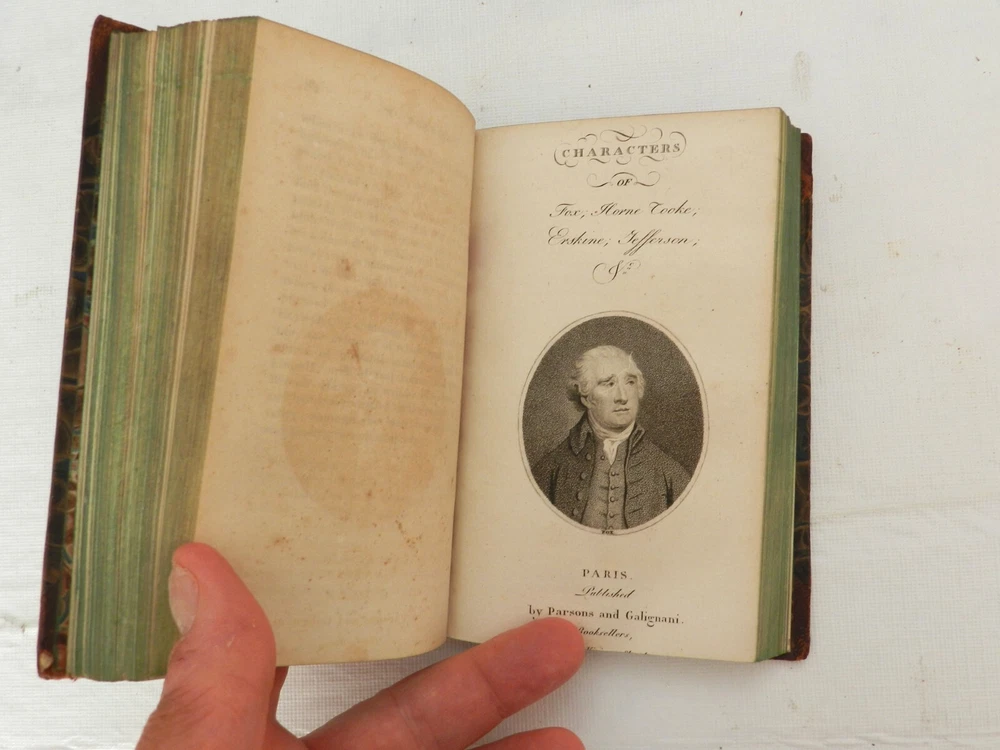 CHARACTERS
OF
Fox; Horne Tooke;
Erskine; Jefferson;
&c
FOX
PARIS.
Published
by Parsons and Galignani.
Booksellers,